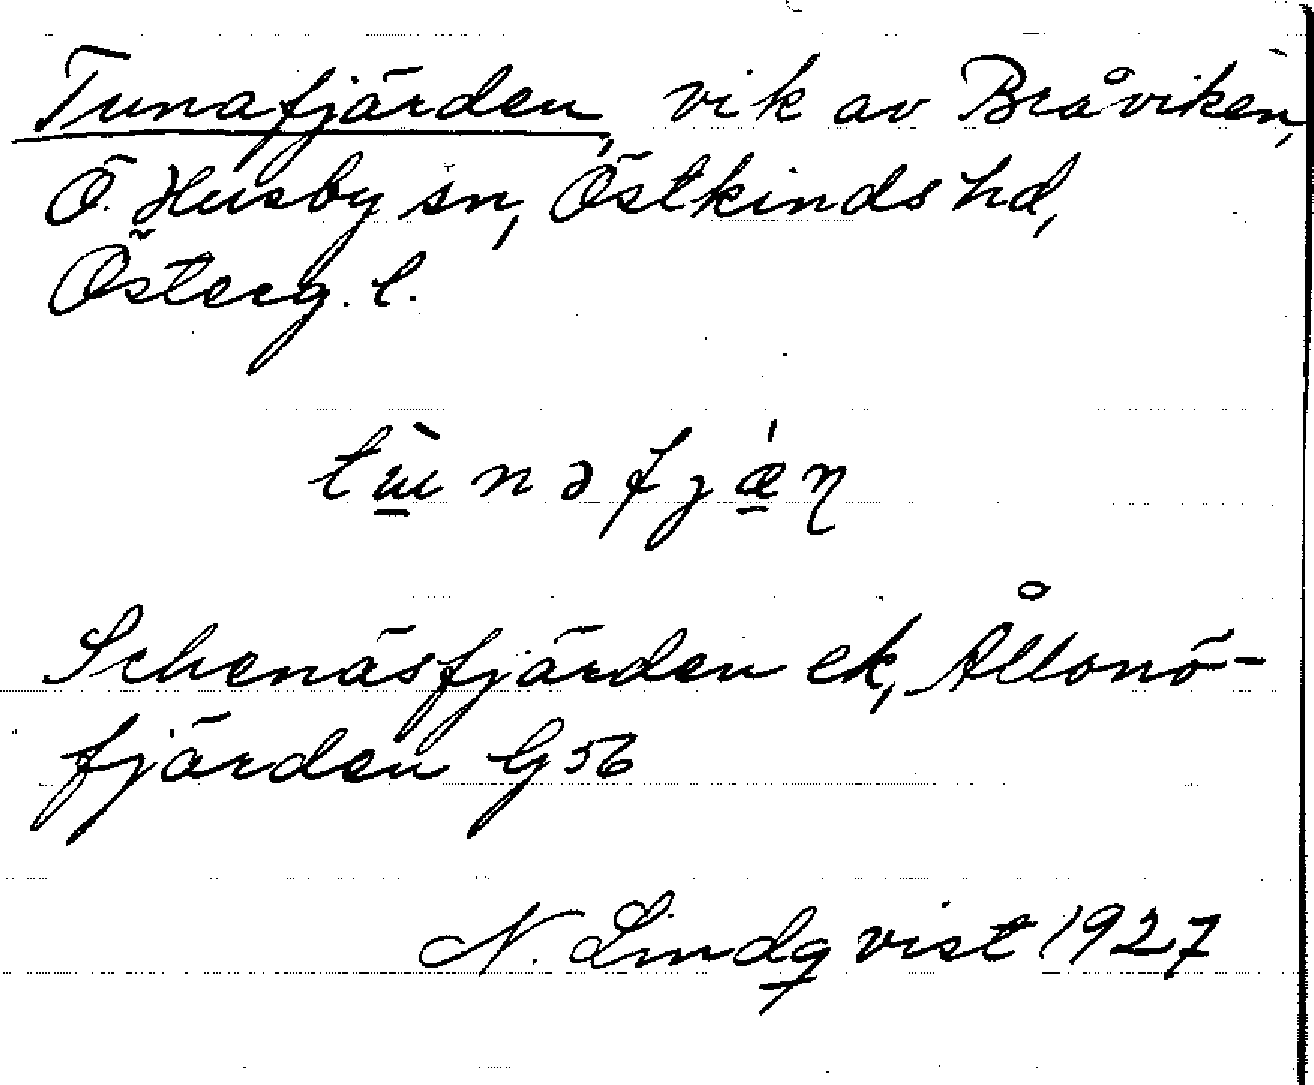 Tunafjärden, vik av Bråviken,
Ö. Husby sn, Östkinds hd,
Österg. l.
tɯ̀nəfjǽɳ
Schenäsfjärden ek, Ållonö-
fjärden G 56
N. Lindqvist 1927